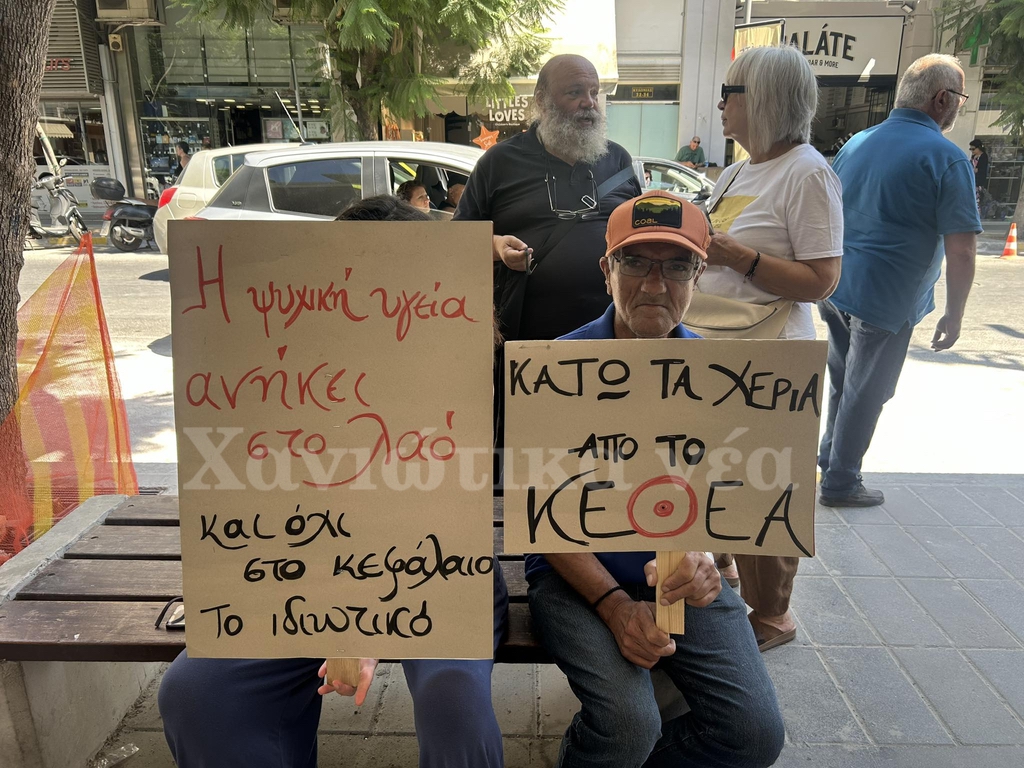 Η ψυχική υγεία
ανήκει
στο λαό
και όχι
στο κεφάλαιο
το ιδιωτικό
ΚΑΤΩ ΤΑ ΧΕΡΙΑ
ΑΠΟ ΤΟ
ΚΕΘΕΑ
Χανιώτικα νέα
LITTLES
LOVES
ALÁTE
BAR & MORE
COAL